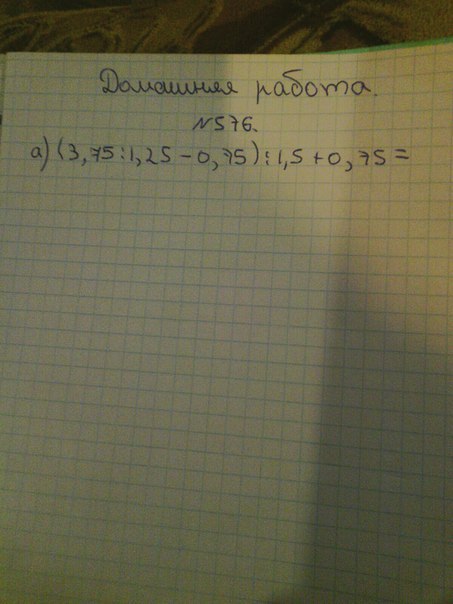 Домашняя работа.
№576.
а) (3,75:1,25-0,75):1,5+0,75=